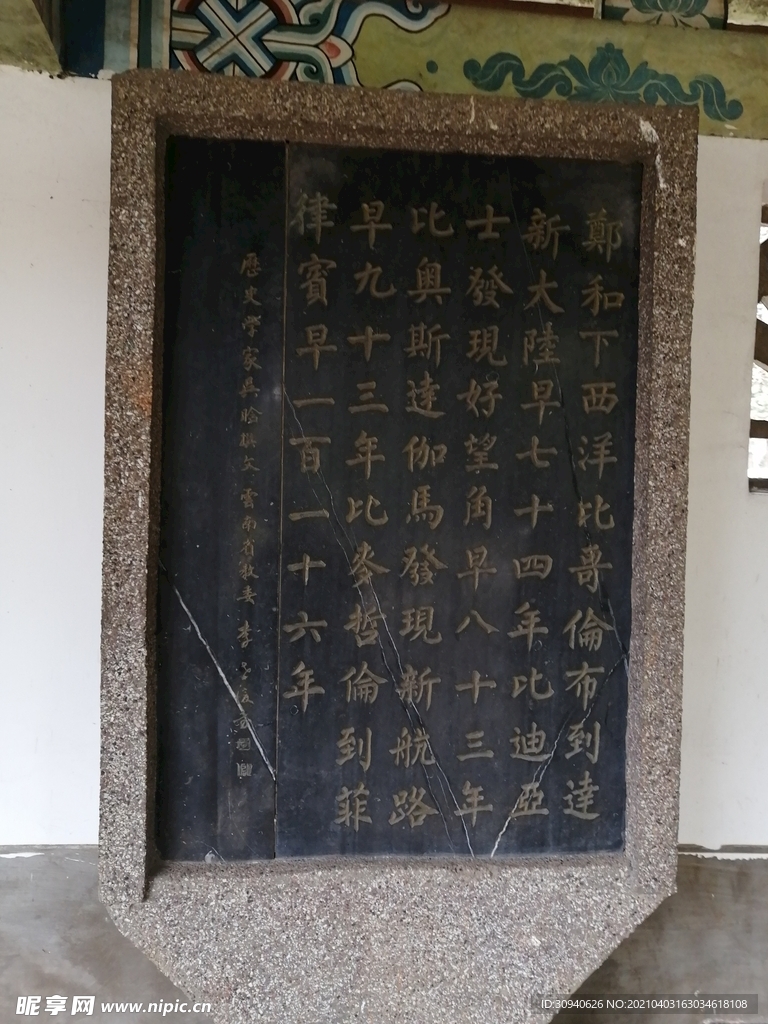 鄭和下西洋比哥倫布到達
新大陸早七十四年比迪亞
士發現好望角早八十三年
比奧斯達伽馬發現新航路
早九十三年比麥哲倫到菲
律賓早一百一十六年
歷史學家吳晗撰文 雲南省教委 李
昵享网 www.nipic.cn
ID:30940626 NO:20210403163034618108